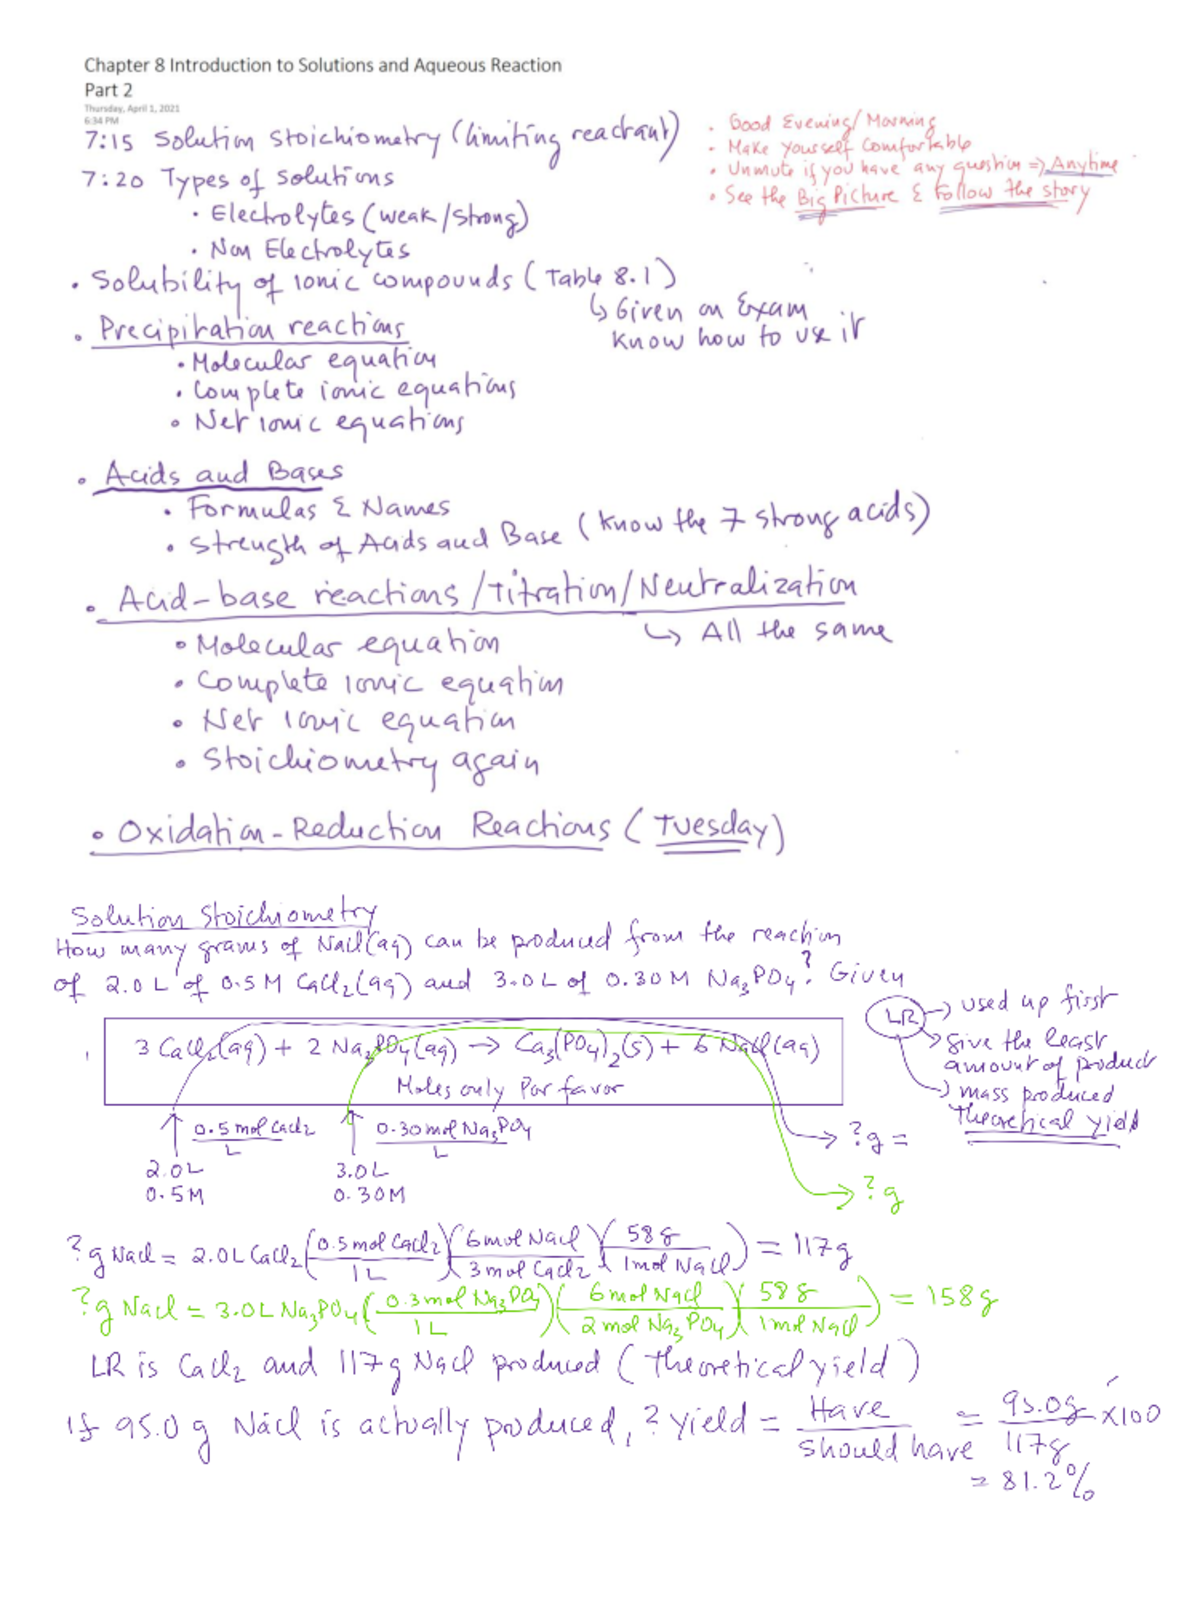 Chapter 8 Introduction to Solutions and Aqueous Reaction
Part 2
Thursday, April 1, 2021
6:34 PM
7:15 Solution Stoichiometry (limiting reactant)
7:20 Types of Solutions
• Electrolytes (weak/strong)
• Non Electrolytes
• Good Evening/Morning
• Make yourself Comfortable
• Unmute if you have any question => Anytime
• See the Big Picture & Follow the story
• Solubility of ionic compounds (Table 8.1)
↳ Given on Exam
Know how to use it
• Precipitation reactions
• Molecular equation
• Complete ionic equations
• Net ionic equations
• Acids and Bases
• Formulas & Names
• Strength of Acids and Base (Know the 7 strong acids)
• Acid-base reactions/Titration/Neutralization
↳ All the same
• Molecular equation
• Complete ionic equation
• Net ionic equation
• Stoichiometry again
• Oxidation-Reduction Reactions (Tuesday)
Solution Stoichiometry
How many grams of NaCl(aq) can be produced from the reaction
of 2.0 L of 0.5 M CaCl₂(aq) and 3.0 L of 0.30 M Na₃PO₄? Given
3 CaCl₂(aq) + 2 Na₃PO₄(aq) → Ca₃(PO₄)₂(s) + 6 NaCl(aq)
Moles only Por favor
LR → used up first
→ give the least
amount of product
→ mass produced
theoretical yield
↑ 0.5 mol CaCl₂ / L
2.0 L
0.5 M
↑ 0.30 mol Na₃PO₄ / L
3.0 L
0.30 M
→ ?g =
→ ?g
?g NaCl = 2.0 L CaCl₂ (0.5 mol CaCl₂ / 1 L)(6 mol NaCl / 3 mol CaCl₂)(58 g / 1 mol NaCl) = 117 g
?g NaCl = 3.0 L Na₃PO₄ (0.3 mol Na₃PO₄ / 1 L)(6 mol NaCl / 2 mol Na₃PO₄)(58 g / 1 mol NaCl) = 158 g
LR is CaCl₂ and 117 g NaCl produced (theoretical yield)
If 95.0 g NaCl is actually produced, ? yield = Have / should have = 95.0 g / 117 g × 100
= 81.2%